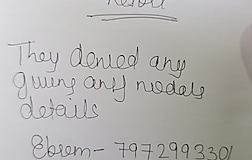 They denied any
giving any nodals
details
Ebsem - 7972993301